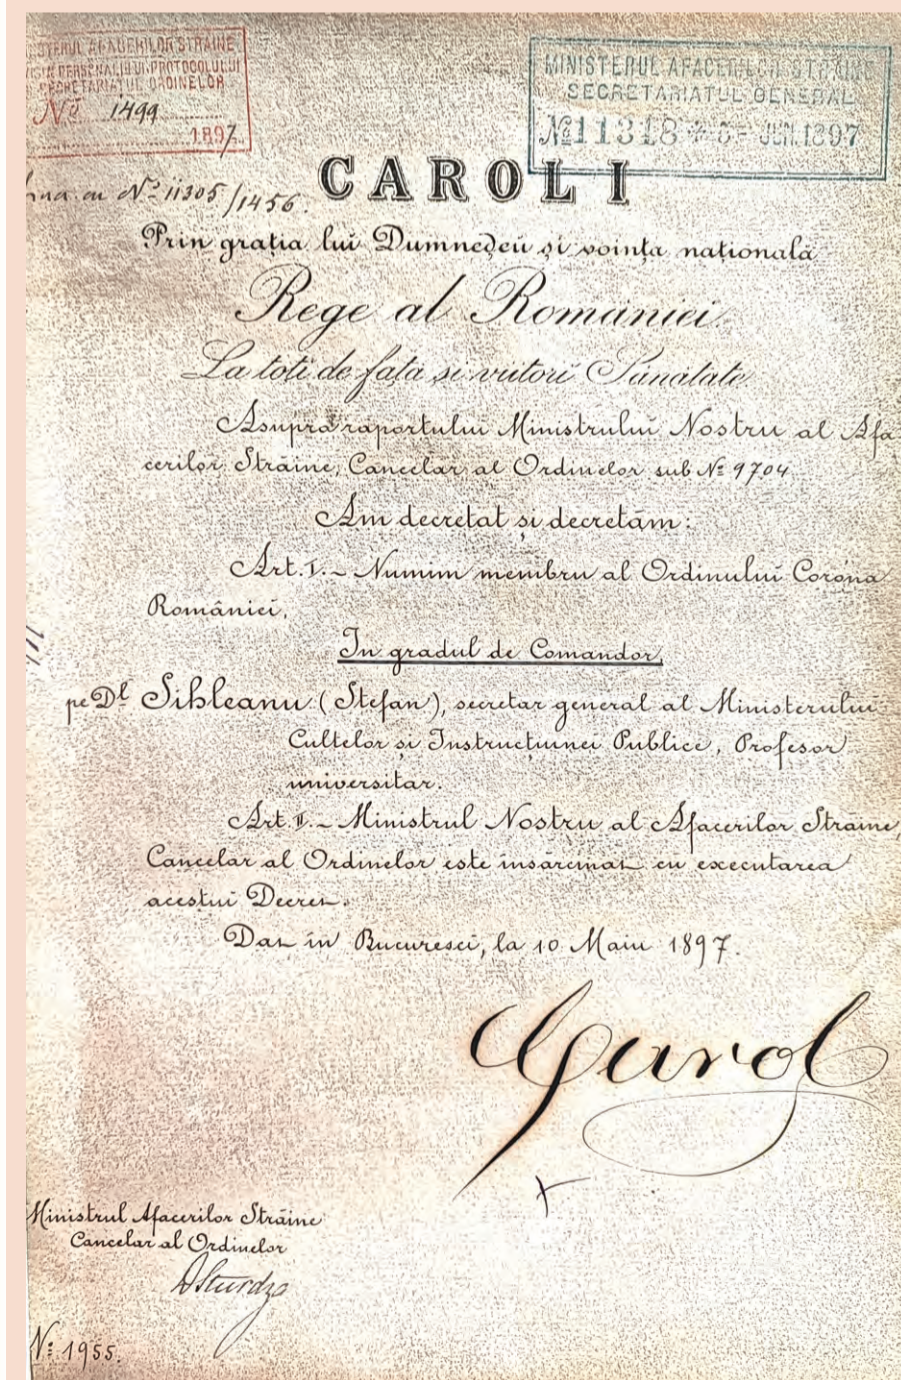 STERUL AFACERILOR STRĂINE
PERSONALULUI PROTOCOLULUI
SECRETARIATUL ORDINELOR
No 1499
1897
MINISTERUL AFACERILOR STRAINE
SECRETARIATUL GENERAL
No 11318 * 5 - JUN. 1897
CAROL I
cu No 11305/1456.
Prin grația lui Dumnedeŭ și voința națională
Rege al României.
La toți de față și viitori Sănătate.
Asupra raportului Ministruluĭ Nostru al Afa
cerilor Străine, Cancelar al Ordinelor sub No 9704
Am decretat și decretăm:
Art. I. - Numim membru al Ordinuluĭ Coróna
României,
In gradul de Comandor,
pe Dl Sihleanu (Stefan), secretar general al Ministeruluĭ
Cultelor și Instrucțiunei Publice, Profesor
universitar.
Art. II. - Ministrul Nostru al Afacerilor Straine,
Cancelar al Ordinelor este însărcinat cu executarea
acestuĭ Decret.
Dat în Bucuresci, la 10 Maiu 1897.
Carol
Ministrul Afacerilor Străine
Cancelar al Ordinelor
DSturdza
No 1955.